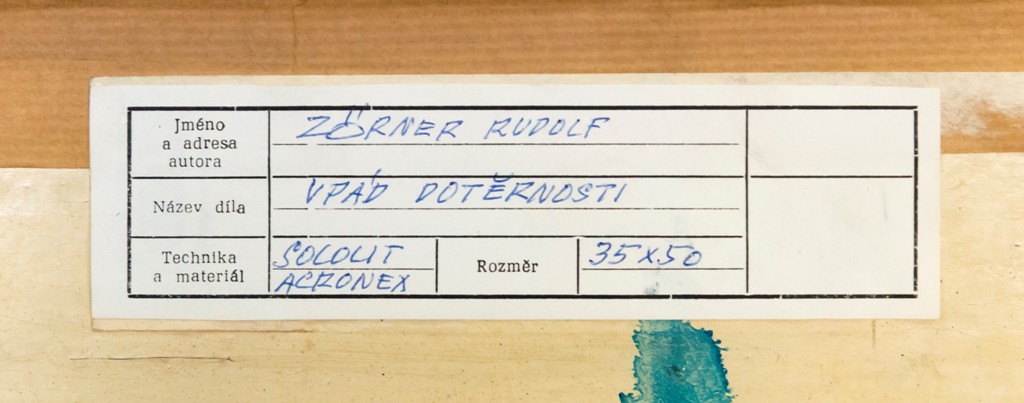 Jméno
a adresa
autora
ZÖRNER RUDOLF
Název díla
VPÁD DOTĚRNOSTI
Technika
a materiál
SOLOLIT
ACRONEX
Rozměr
35x50